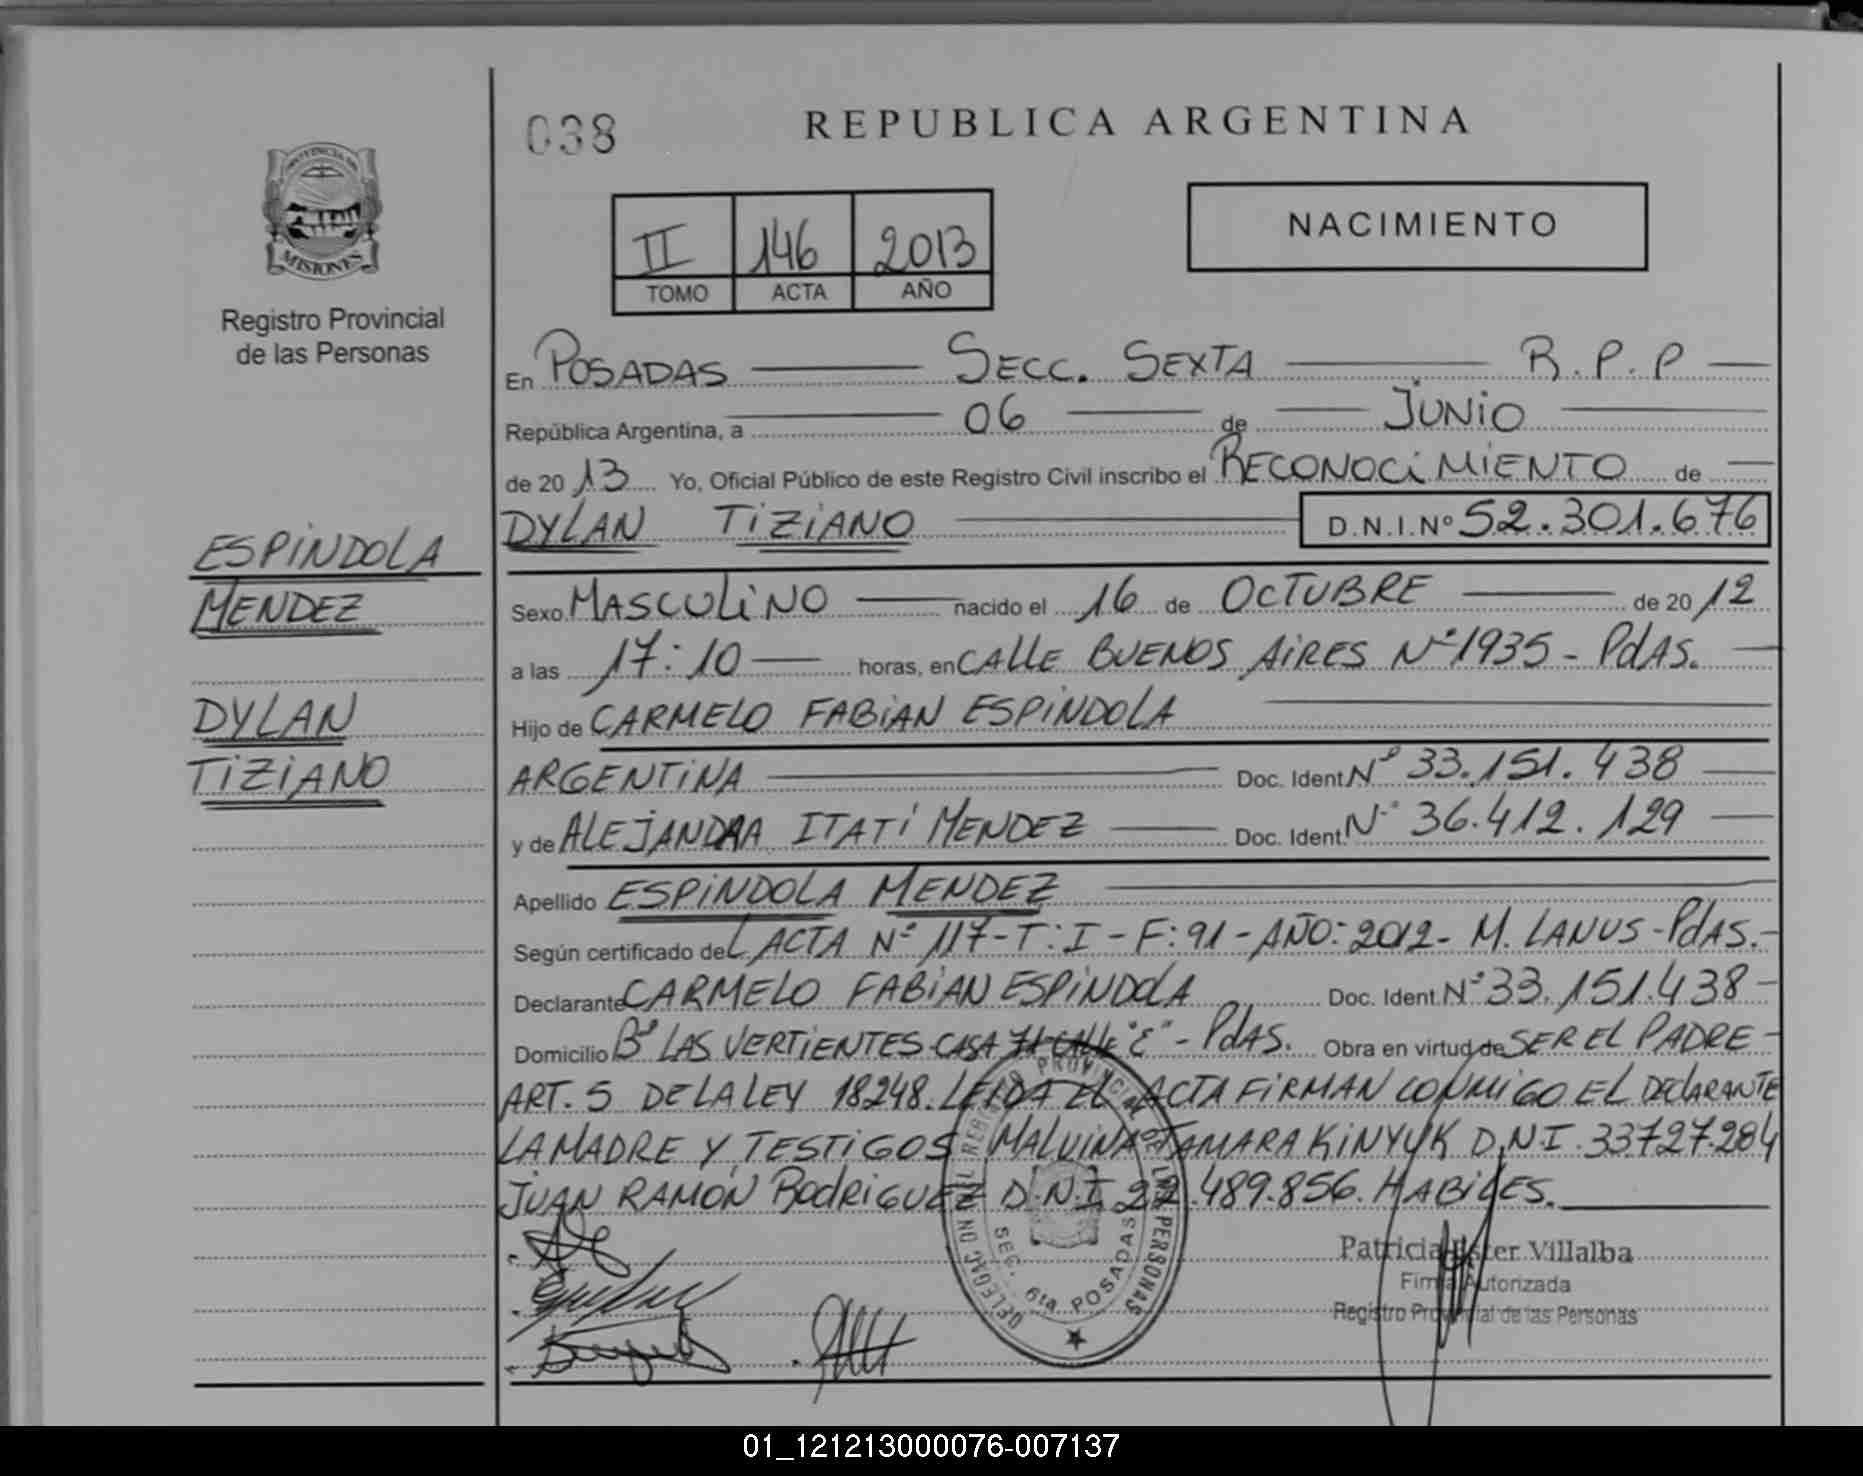 038
REPUBLICA ARGENTINA
PROVINCIA DE
MISIONES
Registro Provincial
de las Personas
II 146 2013
TOMO ACTA AÑO
NACIMIENTO
En POSADAS SECC. SEXTA R.P.P
República Argentina, a 06 de JUNIO
de 2013 Yo, Oficial Público de este Registro Civil inscribo el RECONOCIMIENTO de
DYLAN TIZIANO D.N.I.Nº 52.301.676
ESPINDOLA
MENDEZ
DYLAN
TIZIANO
Sexo MASCULINO nacido el 16 de OCTUBRE de 2012
a las 17:10 horas, en CALLE BUENOS AIRES Nº 1935 - PdAS.
Hijo de CARMELO FABIAN ESPINDOLA
ARGENTINA Doc. Ident. Nº 33.151.438
y de ALEJANDRA ITATI MENDEZ Doc. Ident. Nº 36.412.129
Apellido ESPINDOLA MENDEZ
Según certificado de L ACTA Nº 117-T: I - F: 91 - AÑO: 2012 - M. LANUS - PdAS.-
Declarante CARMELO FABIAN ESPINDOLA Doc. Ident. Nº 33.151.438-
Domicilio Bº LAS VERTIENTES CASA 71 CALLE "E" - PdAS. Obra en virtud de SER EL PADRE-
ART. 5 DE LA LEY 18248. LEIDA EL ACTA FIRMAN CONMIGO EL DECLARANTE
LA MADRE Y TESTIGOS MALVINA TAMARA KINYUK D.N.I. 33727.284
JUAN RAMON RODRIGUEZ D.N.I 22.489.856. HABILES.
DELEGACION DEL REGISTRO PROVINCIAL DE LAS PERSONAS
SEC. 6ta POSADAS
Patricia Ester Villalba
Firma Autorizada
Registro Provincial de las Personas
01_121213000076-007137